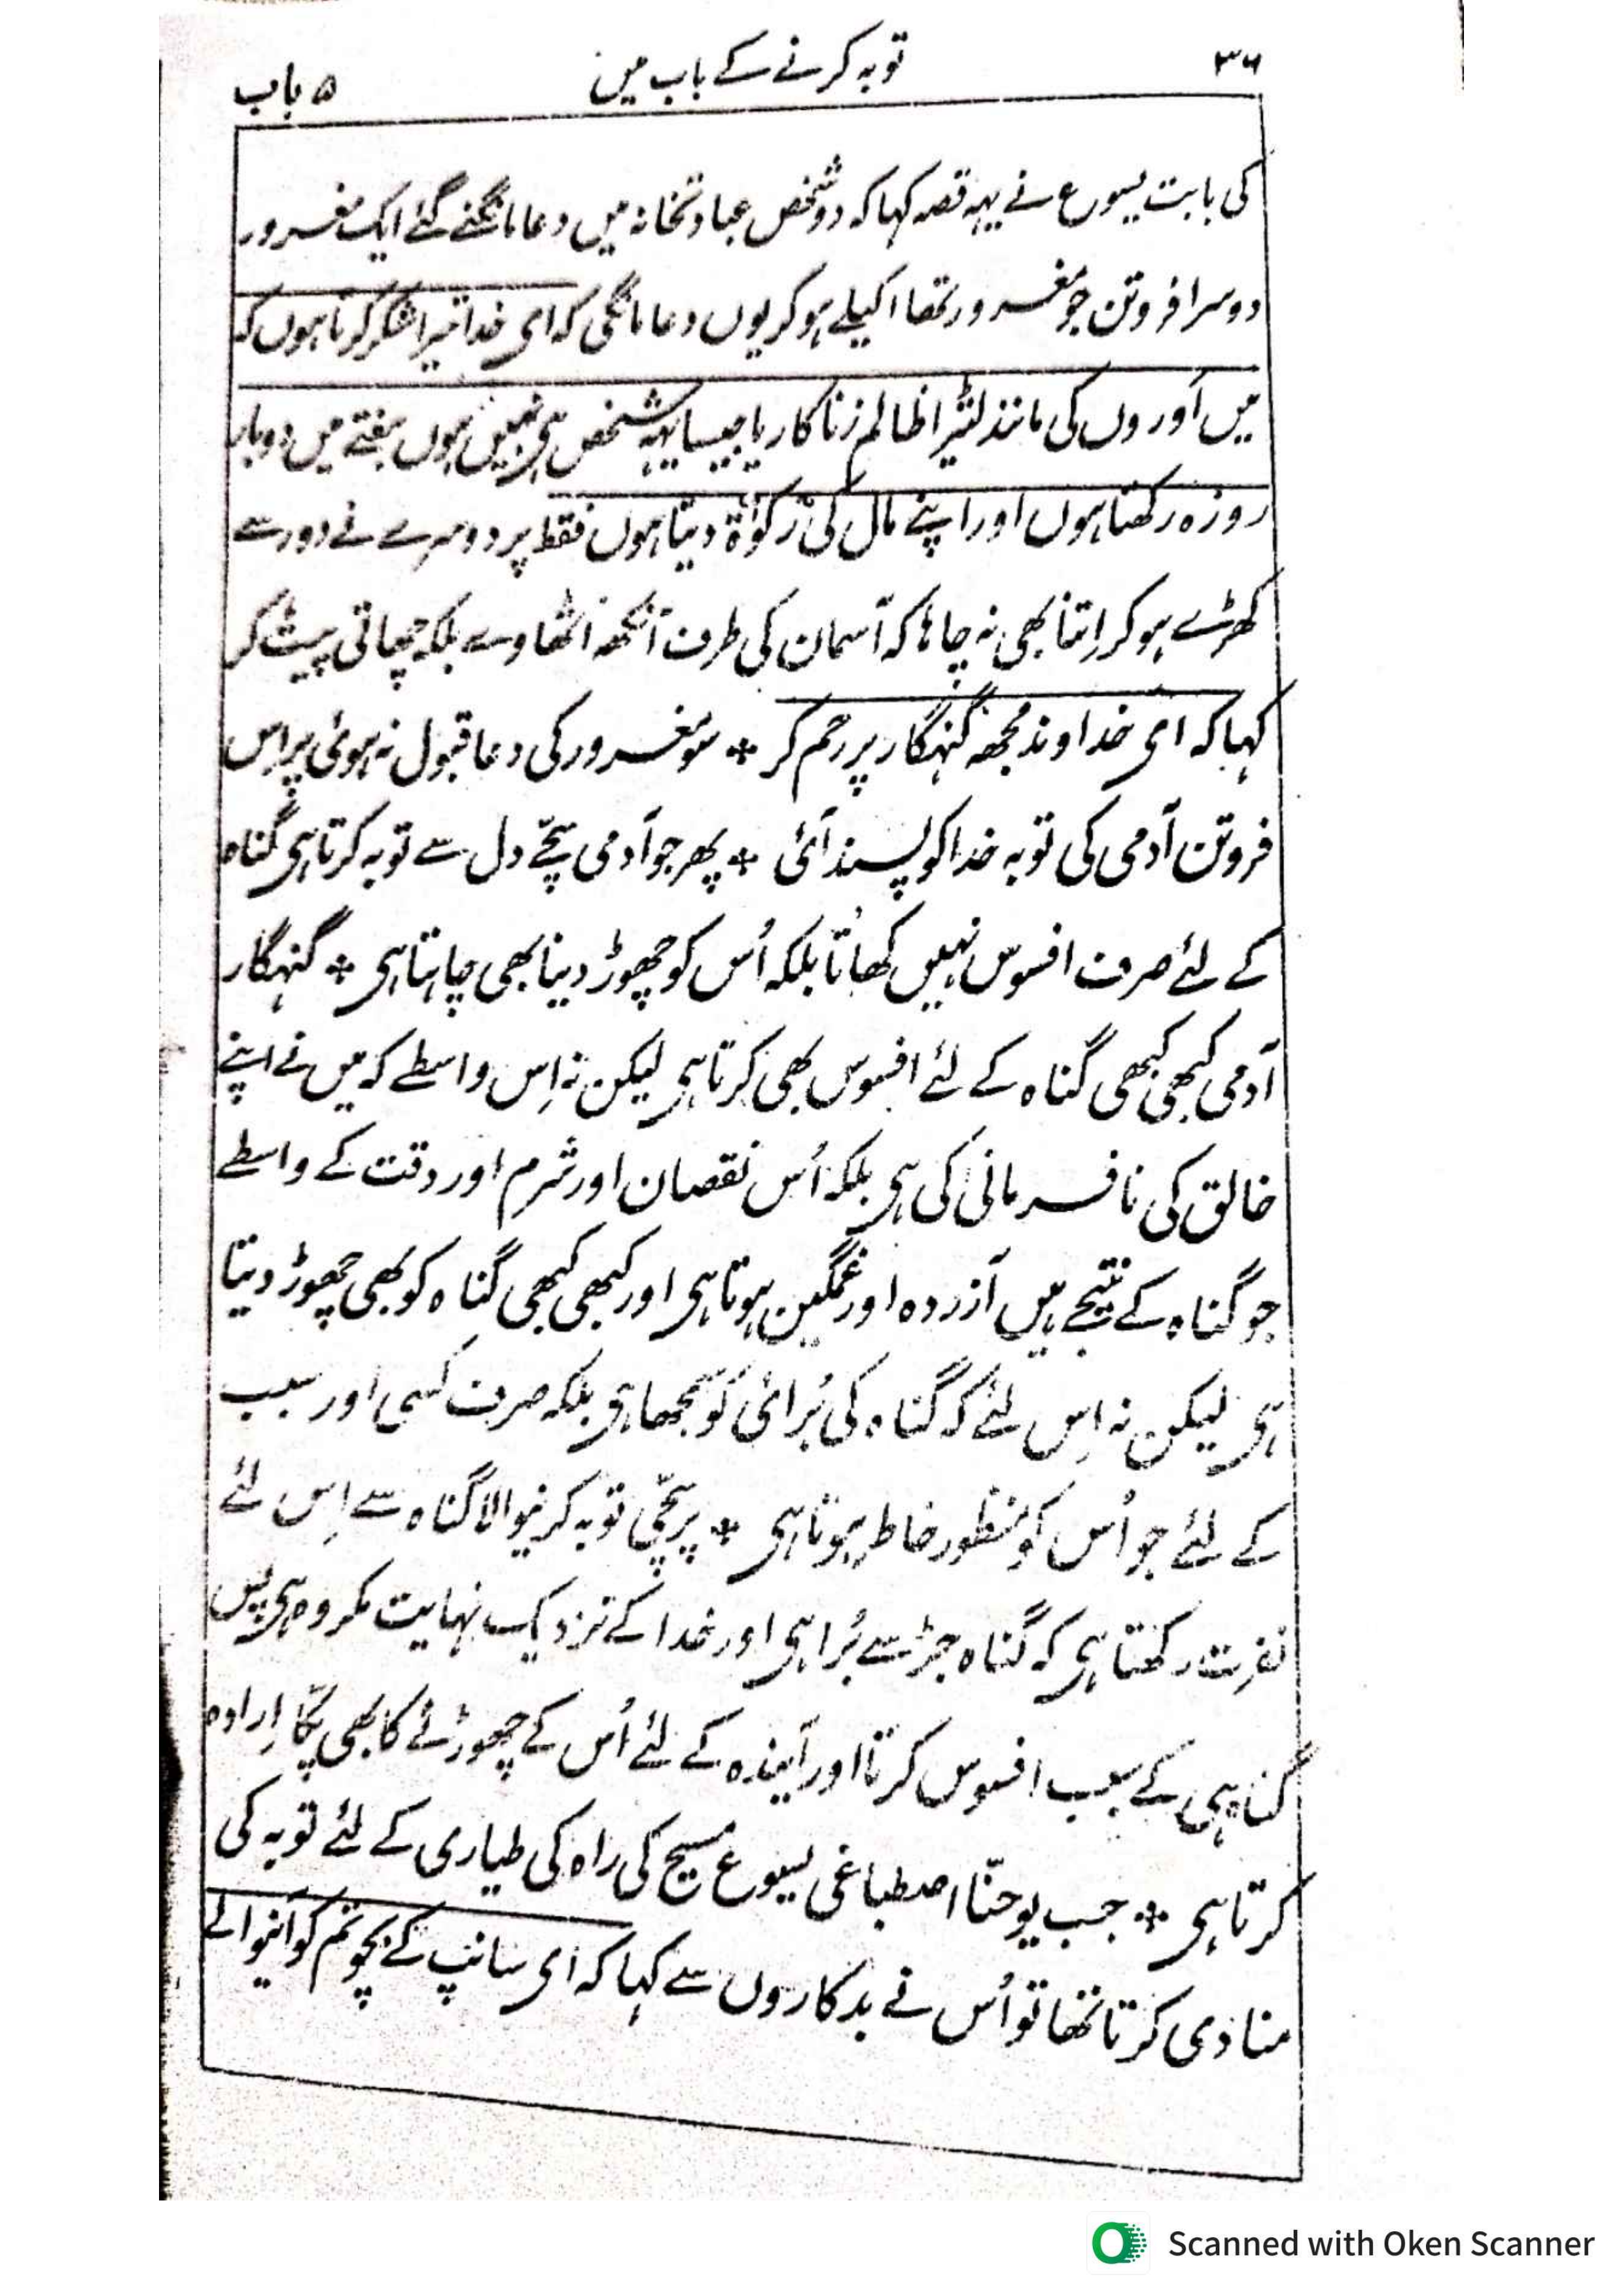 ۳۶ توبہ کرنے کے باب میں ۵ باب
کی بابت یسوع نے یہہ قصہ کہا کہ دو شخص عبادتخانہ میں دعا مانگنے گئے ایک مغرور
دوسرا فروتن جو مغرور تھا اکیلے ہو کر یوں دعا مانگی کہ ای خدا تیرا شکر کرتا ہوں کہ
میں اَوروں کی مانند لٹیرا ظالم زناکار یا جیسا یہہ شخص ہی نہیں ہوں ہفتے میں دوبار
روزہ رکھتا ہوں اور اپنے مال کی زکوٰۃ دیتا ہوں فقط پر دوسرے نے دور سے
کھڑے ہو کر اِتنا بھی نہ چاہا کہ آسمان کی طرف آنکھہ اُٹھاوے بلکہ چھاتی پیٹ کر
کہا کہ ای خداوند مجھہ گنہگار پر رحم کر * سو مغرور کی دعا قبول نہ ہوئی پر اِس
فروتن آدمی کی توبہ خدا کو پسند آئی * پھر جو آدمی سچّے دل سے توبہ کرتا ہی گناہ
کے لئے صرف افسوس نہیں کھاتا بلکہ اُس کو چھوڑ دینا بھی چاہتا ہی * گنہگار
آدمی کبھی کبھی گناہ کے لئے افسوس بھی کرتا ہی لیکن نہ اِس واسطے کہ میں نے اپنے
خالق کی نافرمانی کی ہی بلکہ اُس نقصان اور شرم اور دقت کے واسطے
جو گناہ کے نتیجے ہیں آزردہ اور غمگین ہوتا ہی اور کبھی کبھی گناہ کو بھی چھوڑ دیتا
ہی لیکن نہ اِس لئے کہ گناہ کی بُرائی کو سمجھا ہی بلکہ صرف کسی اور سبب
کے لئے جو اُس کو منظور خاطر ہوتا ہی * پر سچّی توبہ کرنیوالا گناہ سے اِس لئے
نفرت رکھتا ہی کہ گناہ جڑ سے بُرا ہی اور خدا کے نزدیک نہایت مکروہ ہی پس
گناہ ہی کے سبب افسوس کرتا اور آیندہ کے لئے اُس کے چھوڑنے کا بھی پکّا اِرادہ
کرتا ہی * جب یوحنّا اصطباغی یسوع مسیح کی راہ کی طیاری کے لئے توبہ کی
منادی کرتا تھا تو اُس نے بدکاروں سے کہا کہ ای سانپ کے بچو تم کو آنیوالے
Scanned with Oken Scanner